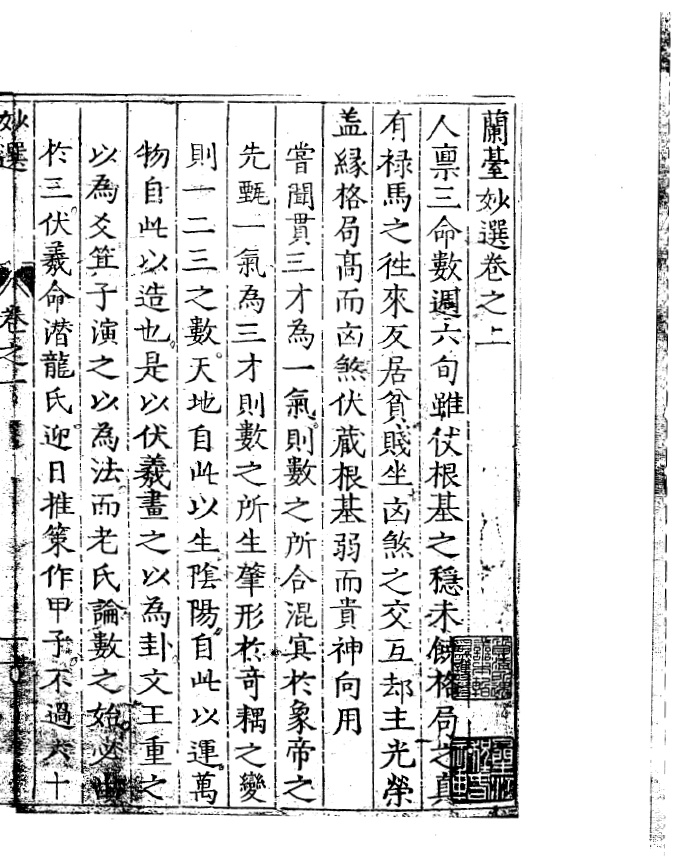 蘭䑓妙選卷之上
人禀三命數週六旬雖仗根基之穩未饒格局之真
有禄馬之徃來反居貧賤坐凶煞之交互却主光榮
盖緣格局髙而凶煞伏藏根基弱而貴神向用
嘗聞貫三才為一氣則數之所合混冥於象帝之
先甄一氣為三才則數之所生肇形於奇耦之變
則一二三之數天地自此以生陰陽自此以運萬
物自此以造也是以伏羲畫之以為卦文王重之
以為爻箕子演之以為法而老氏論數之始必
於三伏羲命潛龍氏迎日推策作甲子不過六十
妙選 卷之上